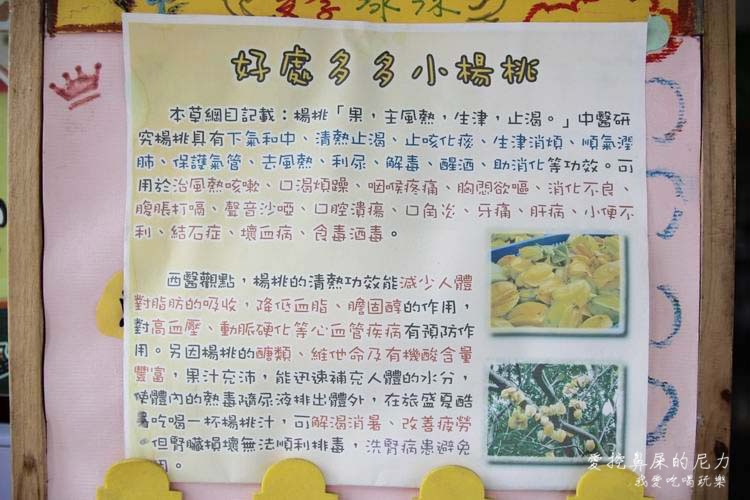 愛享 冰涼
好處多多小楊桃
本草綱目記載：楊桃「果，主風熱，生津，止渴。」中醫研
究楊桃具有下氣和中、清熱止渴、止咳化痰、生津消煩、順氣潤
肺、保護氣管、去風熱、利尿、解毒、醒酒、助消化等功效。可
用於治風熱咳嗽、口渴煩躁、咽喉疼痛、胸悶欲嘔、消化不良、
腹脹打嗝、聲音沙啞、口腔潰瘍、口角炎、牙痛、肝病、小便不
利、結石症、壞血病、食毒酒毒。
西醫觀點，楊桃的清熱功效能減少人體
對脂肪的吸收，降低血脂、膽固醇的作用，
對高血壓、動脈硬化等心血管疾病有預防作
用。另因楊桃的醣類、維他命及有機酸含量
豐富，果汁充沛，能迅速補充人體的水分，
使體內的熱毒隨尿液排出體外，在旅盛夏酷
暑吃喝一杯楊桃汁，可解渴消暑、改善疲勞
但腎臟損壞無法順利排毒，洗腎病患避免
用。
愛挖鼻屎的尼力
我愛吃喝玩樂